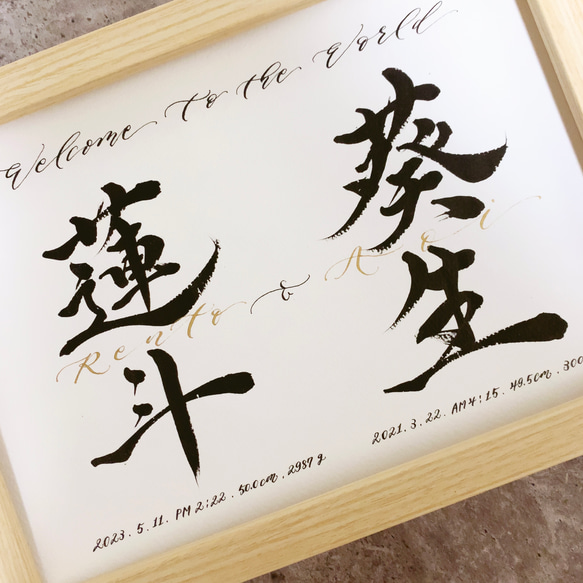 Welcome to the World
葵生
蓮斗
Rento & Aoi
2023.5.11. PM 2:22. 50.0cm. 2987g
2021.3.22. AM 4:15. 49.5cm. 300